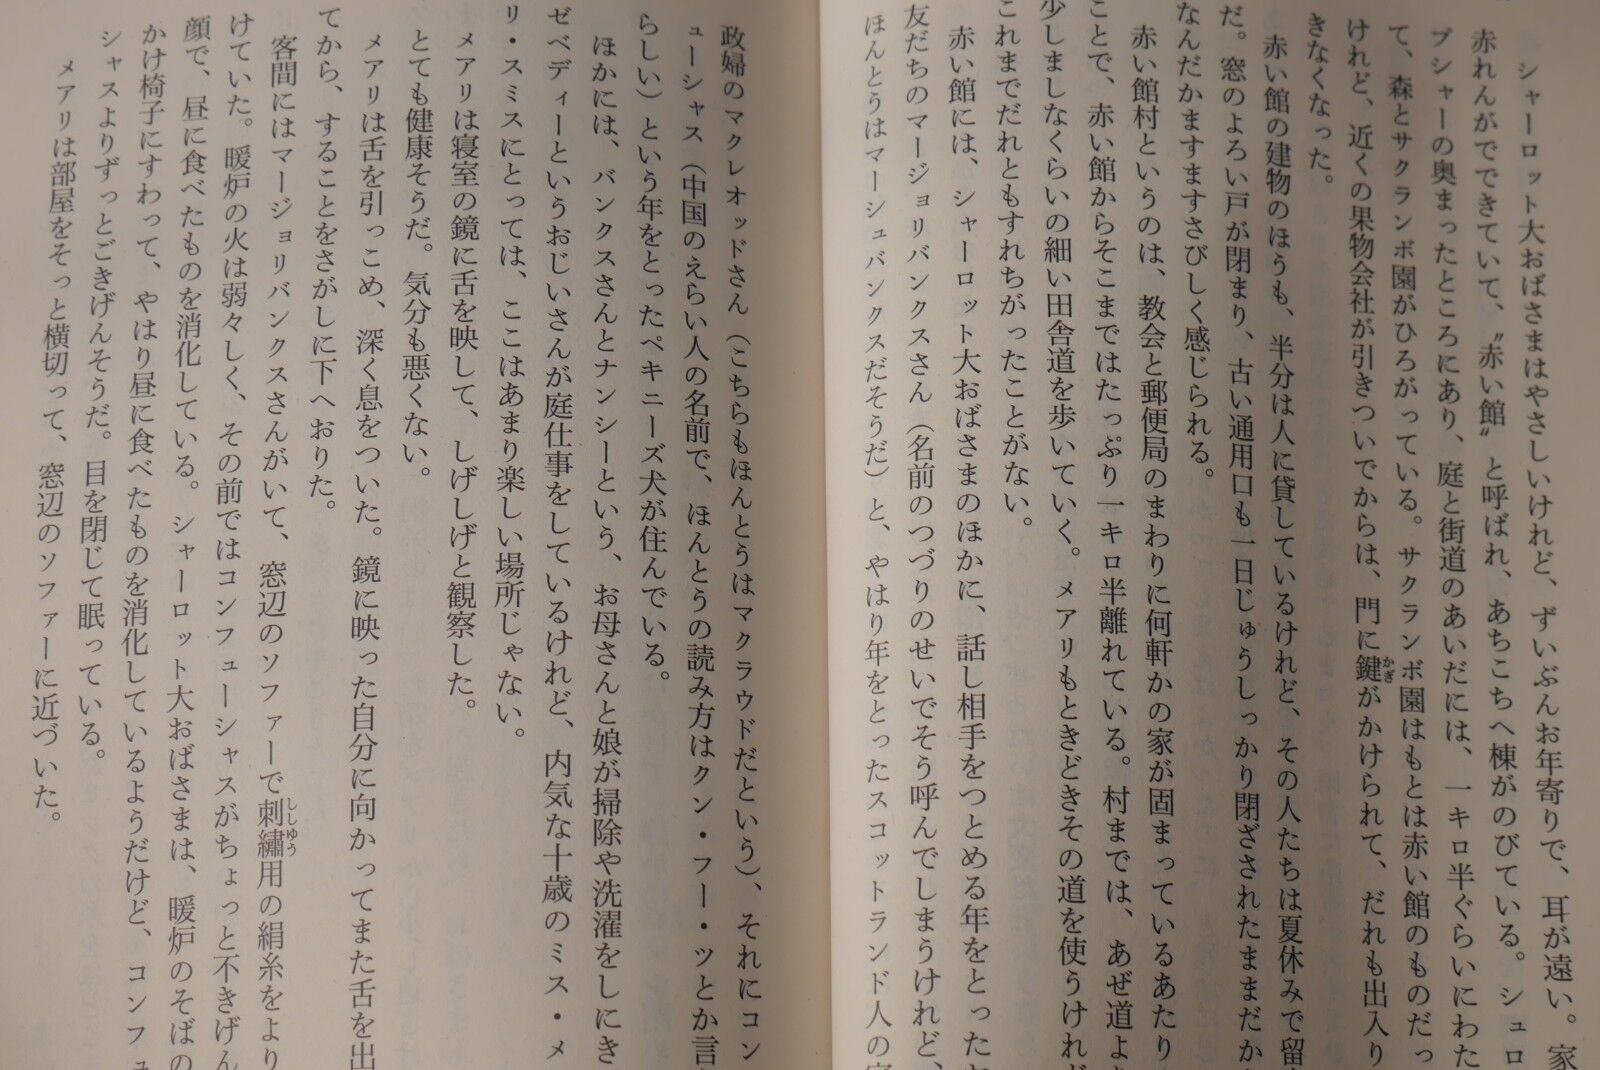 シャーロット大おばさまはやさしいけれど、ずいぶんお年寄りで、耳が遠い。家
赤れんがでできていて、〝赤い館〟と呼ばれ、あちこちへ棟がのびている。シュロ
プシャーの奥まったところにあり、庭と街道のあいだには、一キロ半ぐらいにわた
て、森とサクランボ園がひろがっている。サクランボ園はもとは赤い館のものだっ
けれど、近くの果物会社が引きついでからは、門に鍵がかけられて、だれも出入り
きなくなった。
赤い館の建物のほうも、半分は人に貸しているけれど、その人たちは夏休みで留
だ。窓のよろい戸が閉まり、古い通用口も一日じゅうしっかり閉ざされたままだか
なんだかますますさびしく感じられる。
赤い館村というのは、教会と郵便局のまわりに何軒かの家が固まっているあたり
ことで、赤い館からそこまではたっぷり一キロ半離れている。村までは、あぜ道よ
少しましなくらいの細い田舎道を歩いていく。メアリもときどきその道を使うけれ
これまでだれともすれちがったことがない。
赤い館には、シャーロット大おばさまのほかに、話し相手をつとめる年をとった
友だちのマージョリバンクスさん（名前のつづりのせいでそう呼んでしまうけれど、
ほんとうはマーシュバンクスだそうだ）と、やはり年をとったスコットランド人の
政婦のマクレオッドさん（こちらもほんとうはマクラウドだという）、それにコン
ューシャス（中国のえらい人の名前で、ほんとうの読み方はクン・フー・ツとか言
らしい）という年をとったペキニーズ犬が住んでいる。
ほかには、バンクスさんとナンシーという、お母さんと娘が掃除や洗濯をしにき
ゼベディーというおじいさんが庭仕事をしているけれど、内気な十歳のミス・メ
リ・スミスにとっては、ここはあまり楽しい場所じゃない。
メアリは寝室の鏡に舌を映して、しげしげと観察した。
とても健康そうだ。気分も悪くない。
メアリは舌を引っこめ、深く息をついた。鏡に映った自分に向かってまた舌を出
てから、することをさがしに下へおりた。
客間にはマージョリバンクスさんがいて、窓辺のソファーで刺繡用の絹糸をより
けていた。暖炉の火は弱々しく、その前ではコンフューシャスがちょっと不きげん
顔で、昼に食べたものを消化している。シャーロット大おばさまは、暖炉のそばの
かけ椅子にすわって、やはり昼に食べたものを消化しているようだけど、コンフュ
シャスよりずっとごきげんそうだ。目を閉じて眠っている。
メアリは部屋をそっと横切って、窓辺のソファーに近づいた。